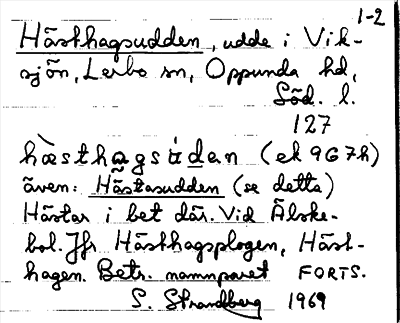 1-2
Hästhagsudden, udde i Vik-
sjön, Lerbo sn, Oppunda hd,
Söd. l.
127
hæ̀sthagsúdan (ek 9G7h)
även: Hästasudden (se detta)
Hästar i bet där. Vid Älske-
bol. Jfr Hästhagsplogen, Häst-
hagen. Betr. namnparet FORTS.
S. Strandberg 1969